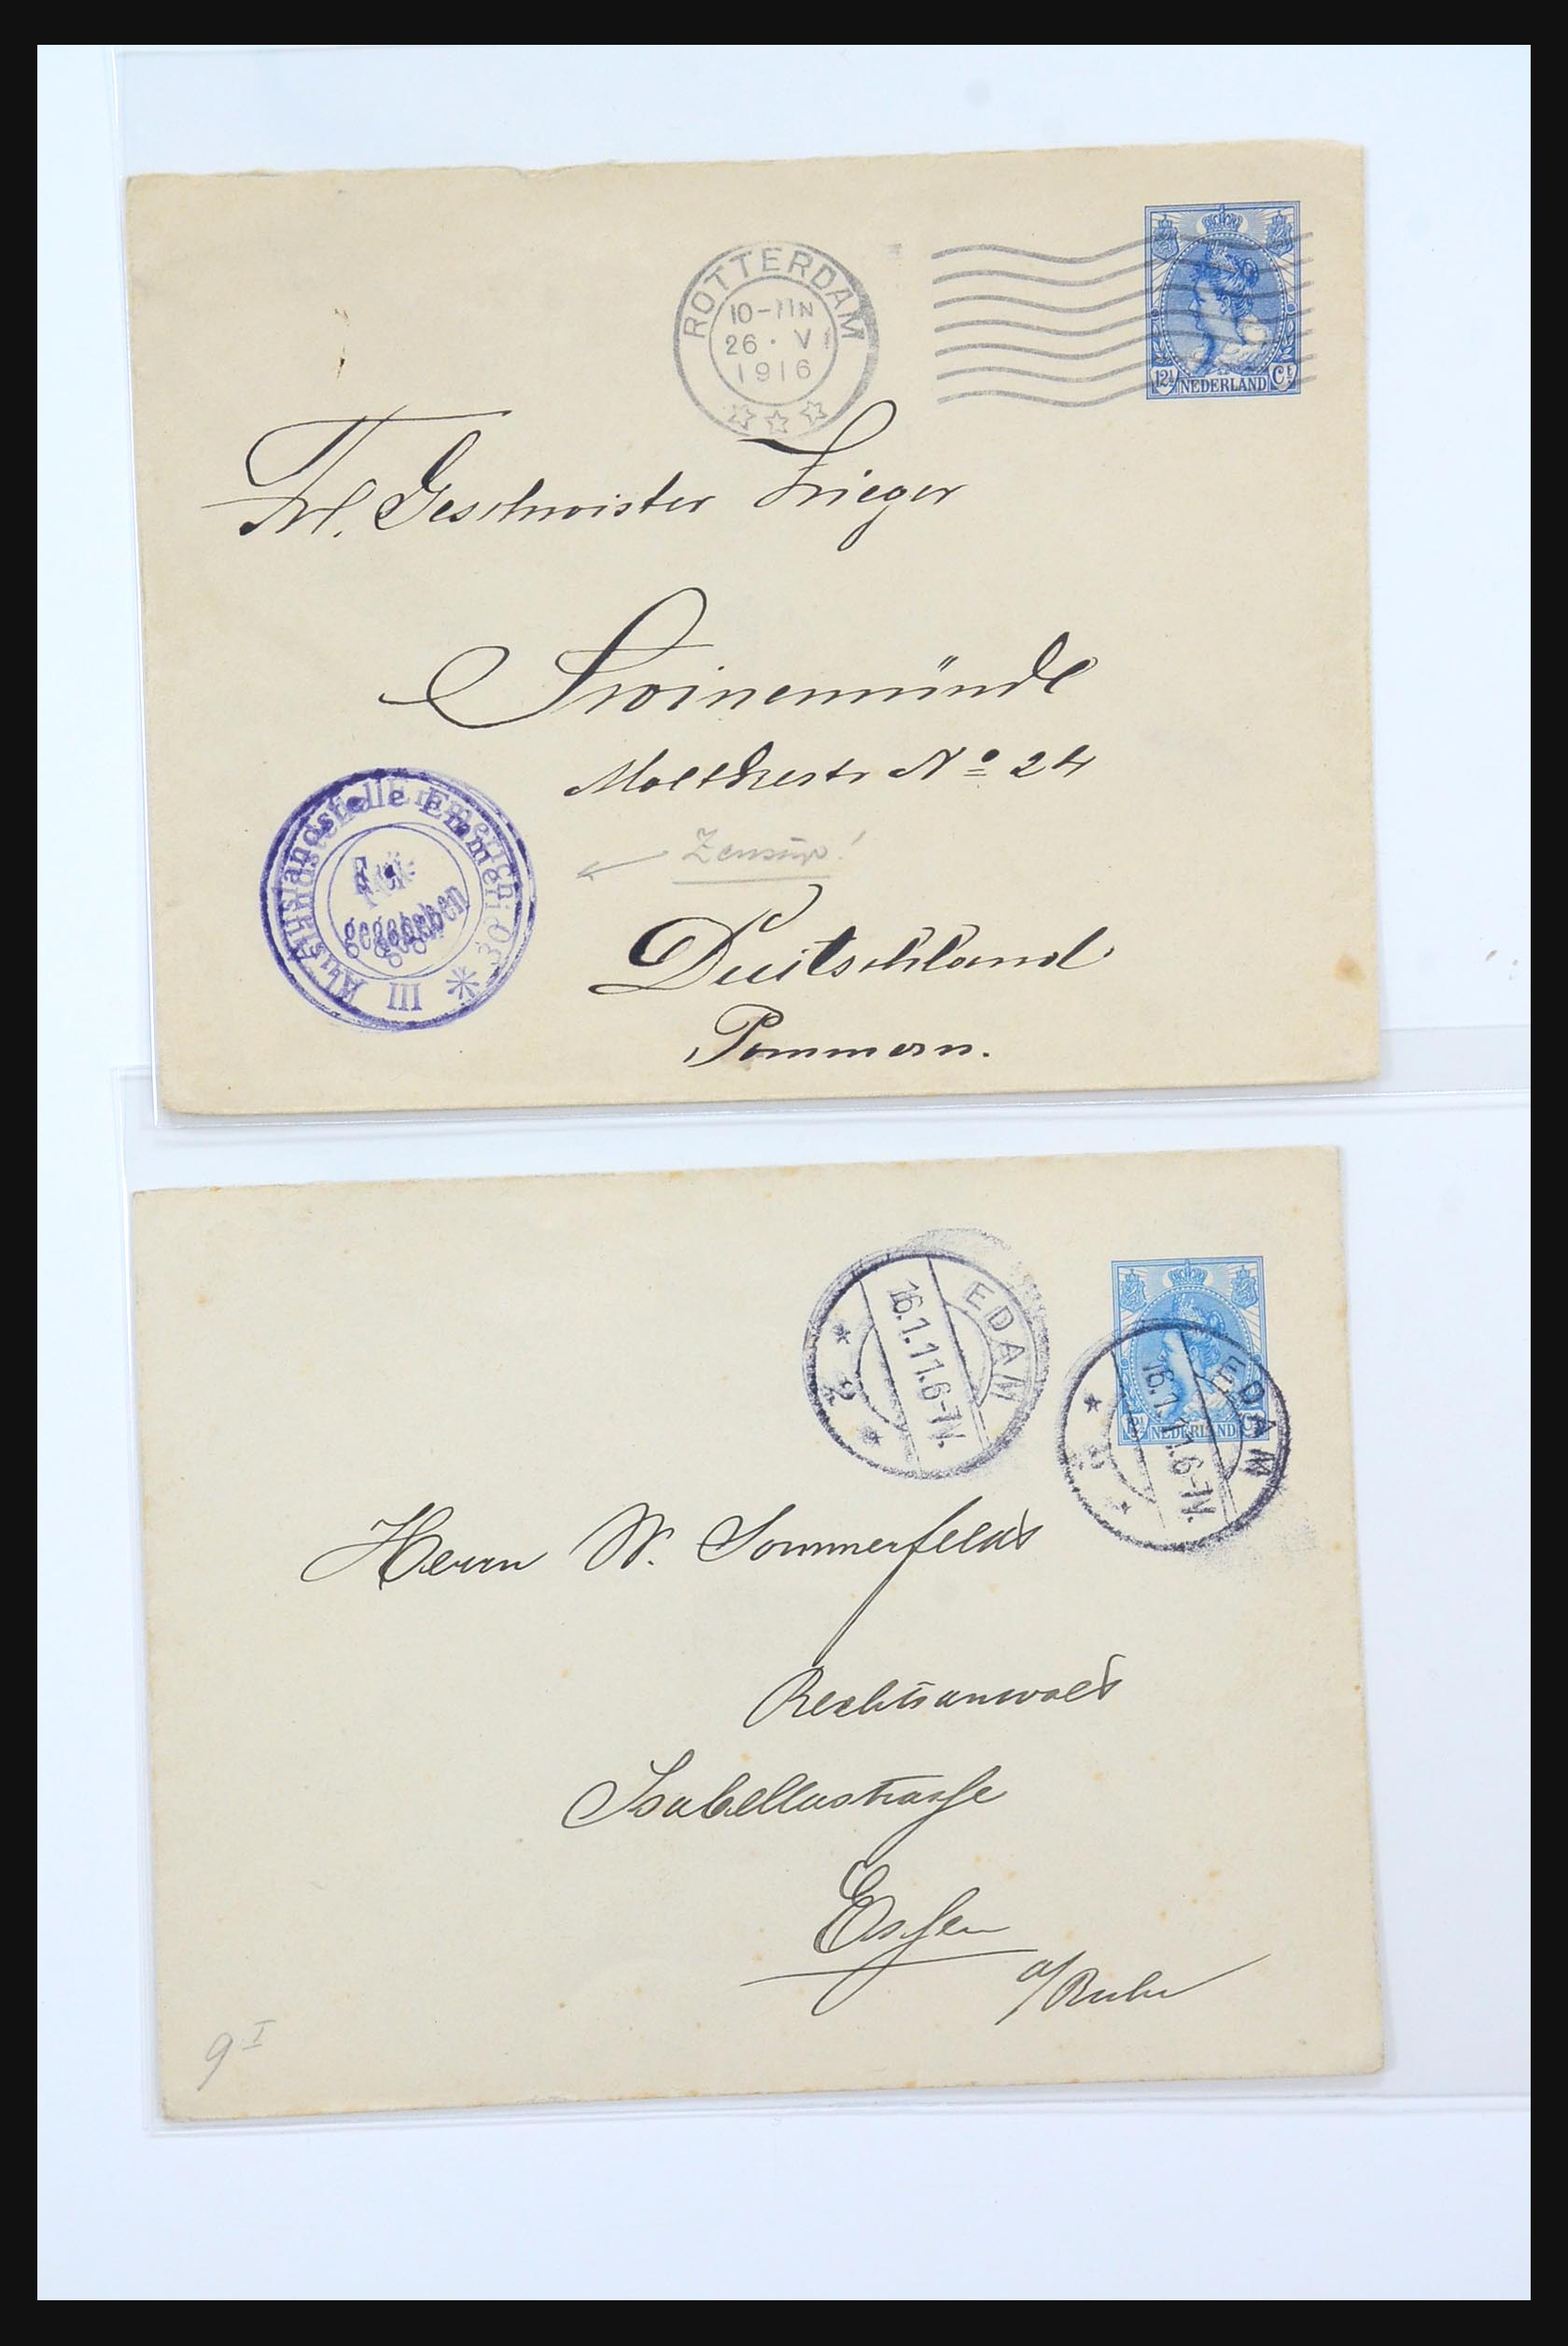 ROTTERDAM
10-11N
26 · VI
1916
12½ NEDERLAND Ct
Frl. Geschwister Krieger
Swinemünde
Moltkestr No 24
Auslandstelle Emmerich
gegeben
III
Zensur!
Deutschland
Pommern.
EDAM
16.1.11.6-7N.
2
EDAM
16.1.11.6-7N.
2
NEDERLAND
Herrn W. Sommerfeldt
Rechtsanwalt
Isabellastrasse
Essen
a/Ruhr
9 I